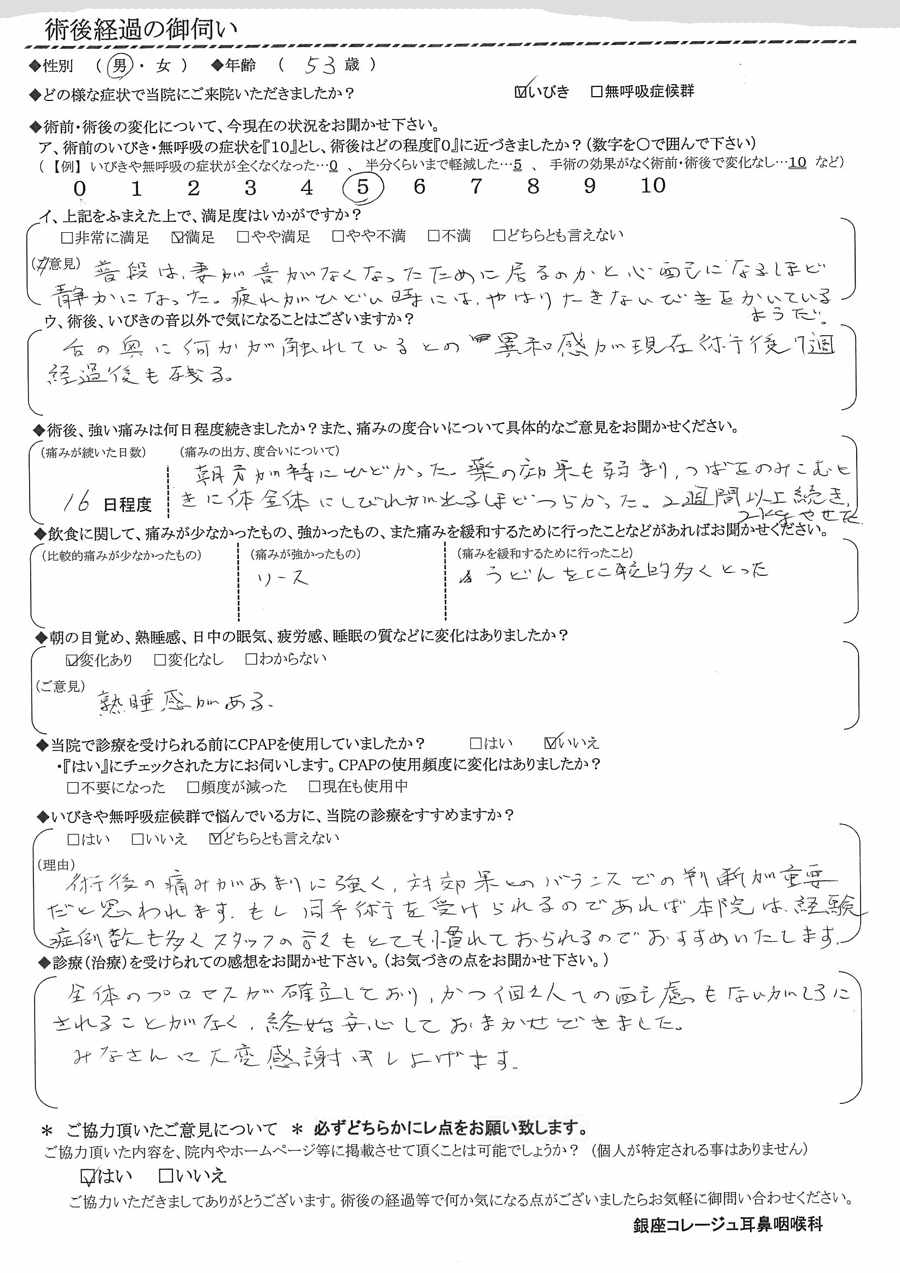 術後経過の御伺い
◆性別 （ 男 ・ 女 ） ◆年齢 （ 53 歳 ）
◆どの様な症状で当院にご来院いただきましたか？ ☑いびき □無呼吸症候群
◆術前・術後の変化について、今現在の状況をお聞かせ下さい。
ア、術前のいびき・無呼吸の症状を『10』とし、術後はどの程度『0』に近づきましたか？（数字を○で囲んで下さい）
（【例】 いびきや無呼吸の症状が全くなくなった…0 、 半分くらいまで軽減した…5 、 手術の効果がなく術前・術後で変化なし…10 など）
0 1 2 3 4 5 6 7 8 9 10
イ、上記をふまえた上で、満足度はいかがですか？
□非常に満足 ☑満足 □やや満足 □やや不満 □不満 □どちらとも言えない
（ご意見） 普段は、妻が音がなくなったために居るのかと心配になるほど
静かになった。疲れがひどい時には、やはり大きないびきをかいている
ようだ。
ウ、術後、いびきの音以外で気になることはございますか？
舌の奥に何かが触れているとの異和感が現在術後7週
経過後も残る。
◆術後、強い痛みは何日程度続きましたか？また、痛みの度合いについて具体的なご意見をお聞かせください。
（痛みが続いた日数） （痛みの出方、度合いについて）
朝方が特にひどかった。薬の効果も弱まり、つばをのみこむと
16 日程度 きに体全体にしびれが出るほどつらかった。2週間以上続き、
2kgやせた
◆飲食に関して、痛みが少なかったもの、強かったもの、また痛みを緩和するために行ったことなどがあればお聞かせください。
（比較的痛みが少なかったもの） （痛みが強かったもの） （痛みを緩和するために行ったこと）
ソース うどんを比較的多くとった
◆朝の目覚め、熟睡感、日中の眠気、疲労感、睡眠の質などに変化はありましたか？
☑変化あり □変化なし □わからない
（ご意見） 熟睡感がある。
◆当院で診療を受けられる前にCPAPを使用していましたか？ □はい ☑いいえ
・『はい』にチェックされた方にお伺いします。CPAPの使用頻度に変化はありましたか？
□不要になった □頻度が減った □現在も使用中
◆いびきや無呼吸症候群で悩んでいる方に、当院の診療をすすめますか？
□はい □いいえ ☑どちらとも言えない
（理由） 術後の痛みがあまりに強く、対効果とのバランスでの判断が重要
だと思われます。もし同手術を受けられるのであれば本院は、経験
症例数も多くスタッフの方々もとても慣れておられるのでおすすめいたします。
◆診療（治療）を受けられての感想をお聞かせ下さい。（お気づきの点をお聞かせ下さい。）
全体のプロセスが確立しており、かつ個々人への配慮もないがしろに
されることがなく、終始安心しておまかせできました。
みなさんに大変感謝申し上げます。
＊ ご協力頂いたご意見について ＊ 必ずどちらかにレ点をお願い致します。
ご協力頂いた内容を、院内やホームページ等に掲載させて頂くことは可能でしょうか？ （個人が特定される事はありません）
☑はい □いいえ
ご協力いただきましてありがとうございます。術後の経過等で何か気になる点がございましたらお気軽に御問い合わせください。
銀座コレージュ耳鼻咽喉科